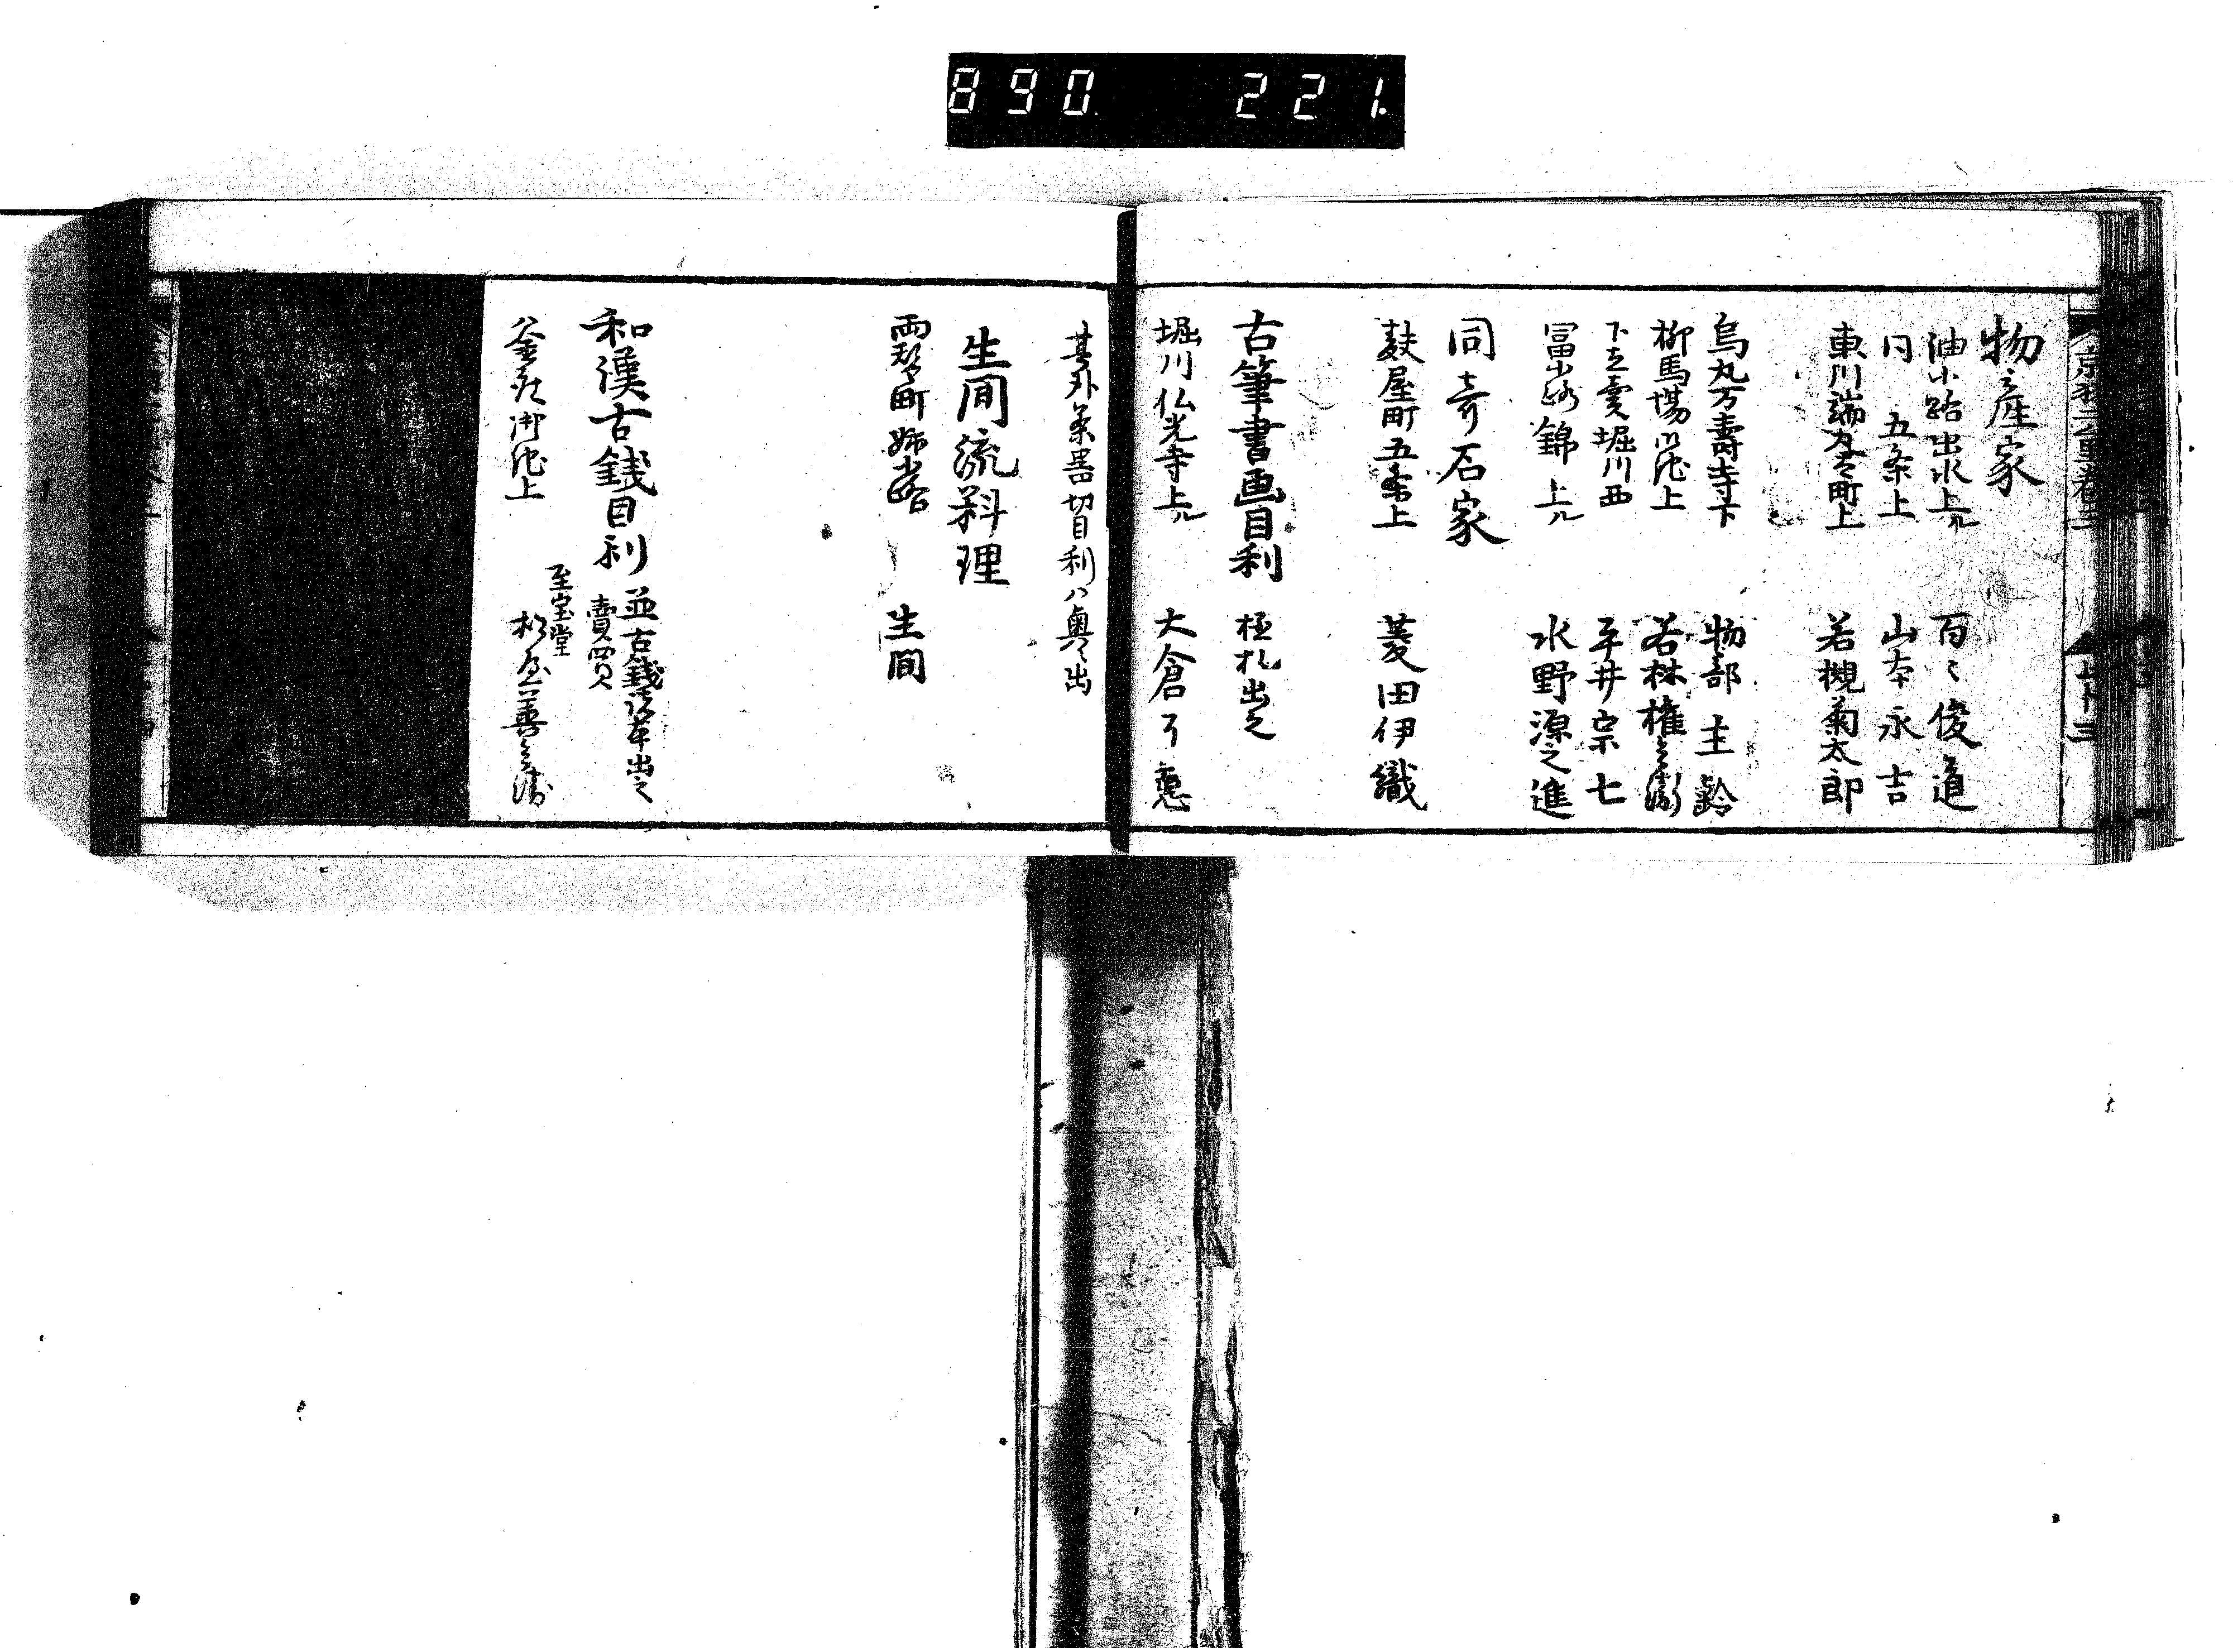 890 221
物産家
油小路出水上ル 百々俊道
同 五条上 山本永吉
東川端丸太町上 若槻菊太郎
烏丸万壽寺下 物部主齢
柳馬場御池上 若林権兵衛
下立賣堀川西 平井宗七
冨小路錦上ル 水野源之進
同奇石家
麩屋町五条上 菱田伊織
古筆書画目利 極札出之
堀川仏光寺上ル 大倉了恵
其外茶器切目利ハ奥ニ出
生間流料理
両替町姉小路 生間
和漢古銭目利 並古銭 出之
賣買
至宝堂
釜座御池上